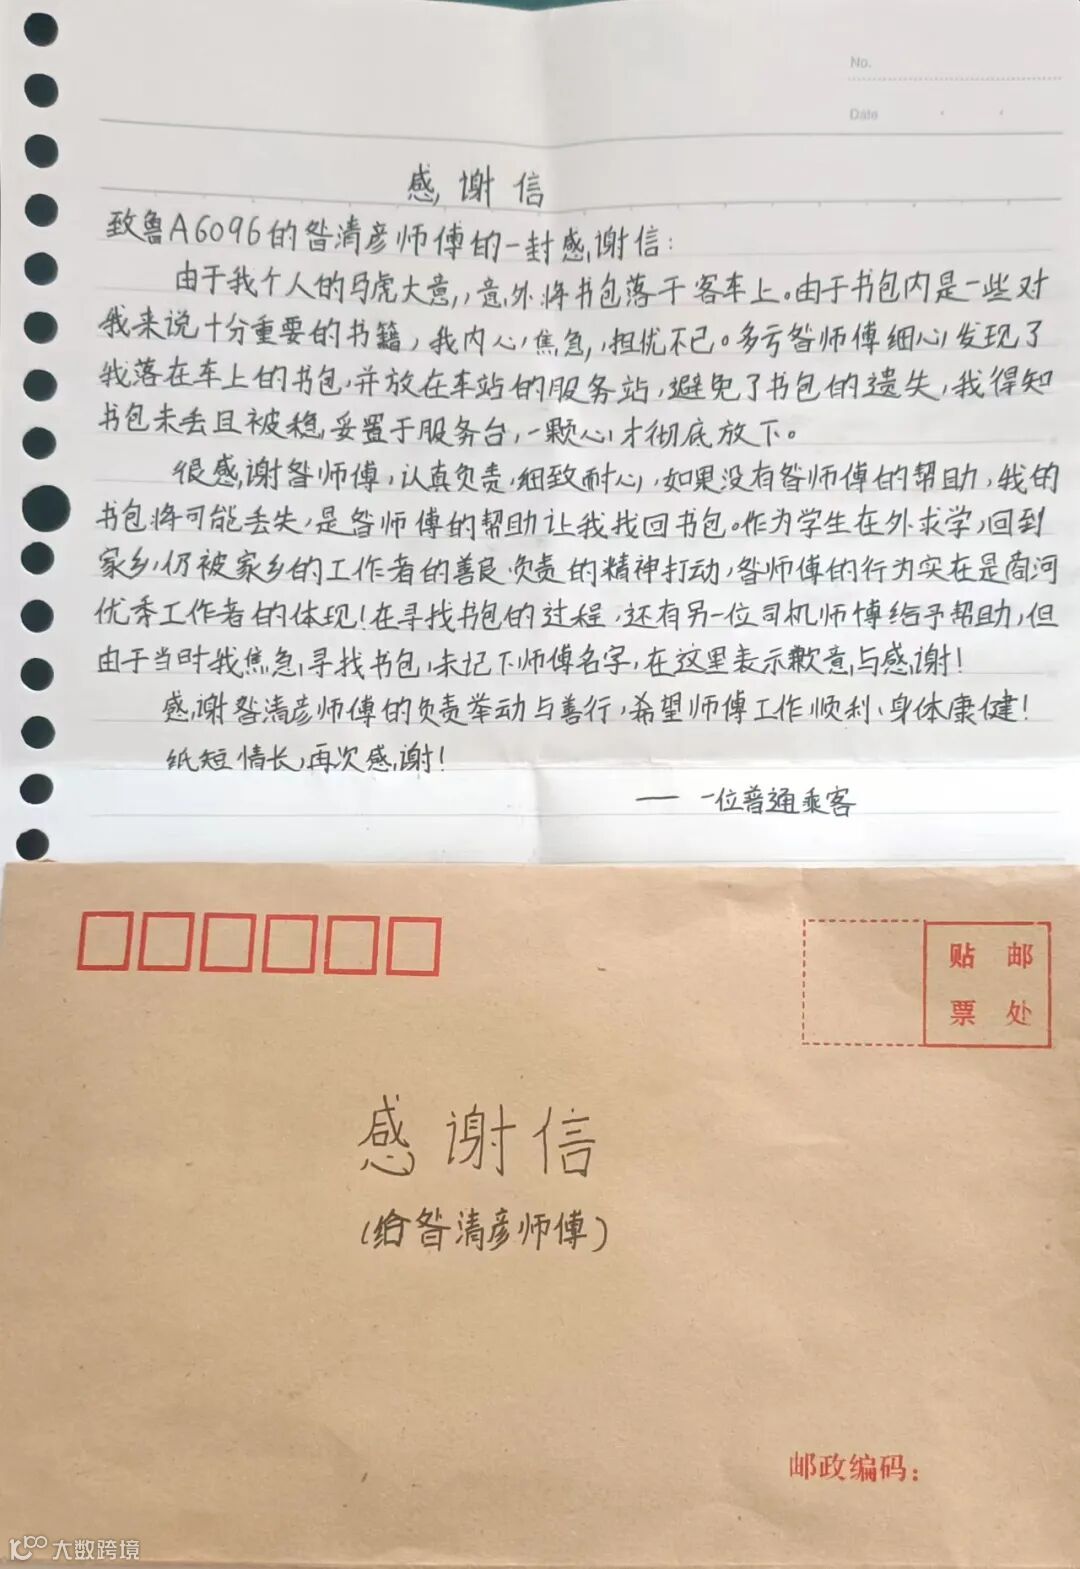 No.
Date
感谢信
致鲁A6096的昝清彦师傅的一封感谢信：
由于我个人的马虎大意，意外将书包落于客车上。由于书包内是一些对
我来说十分重要的书籍，我内心焦急，担忧不已。多亏昝师傅细心发现了
我落在车上的书包，并放在车站的服务站，避免了书包的遗失，我得知
书包未丢且被稳妥置于服务台，一颗心才彻底放下。
很感谢昝师傅，认真负责，细致耐心，如果没有昝师傅的帮助，我的
书包将可能丢失，是昝师傅的帮助让我找回书包。作为学生在外求学，回到
家乡，仍被家乡的工作者的善良、负责的精神打动，昝师傅的行为实在是商河
优秀工作者的体现！在寻找书包的过程，还有另一位司机师傅给予帮助，但
由于当时我焦急寻找书包，未记下师傅名字，在这里表示歉意与感谢！
感谢昝清彦师傅的负责举动与善行，希望师傅工作顺利、身体康健！
纸短情长，再次感谢！
——一位普通乘客
贴邮
票处
感谢信
（给昝清彦师傅）
邮政编码：
大数跨境